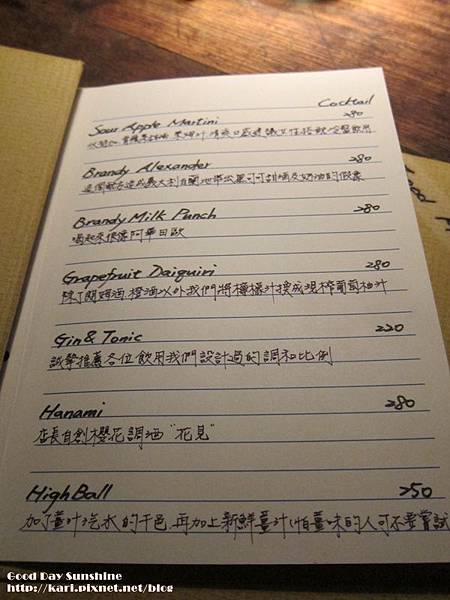 Cocktail
Sour Apple Martini 280
Brandy Alexander 280
Brandy Milk Punch 280
喝起來很像阿華田歐
Grapefruit Daiquiri 280
除了蘭姆酒.橙酒以外我們將檸檬汁換成現榨葡萄柚汁
Gin & Tonic 220
誠摯推薦各位飲用我們設計過的調和比例
Hanami 280
店長自創櫻花調酒"花見"
High Ball 250
加了薑汁汽水的干邑.再加上新鮮薑汁(怕薑味的人可不要嘗試
Good Day Sunshine
http://kari.pixnet.net/blog